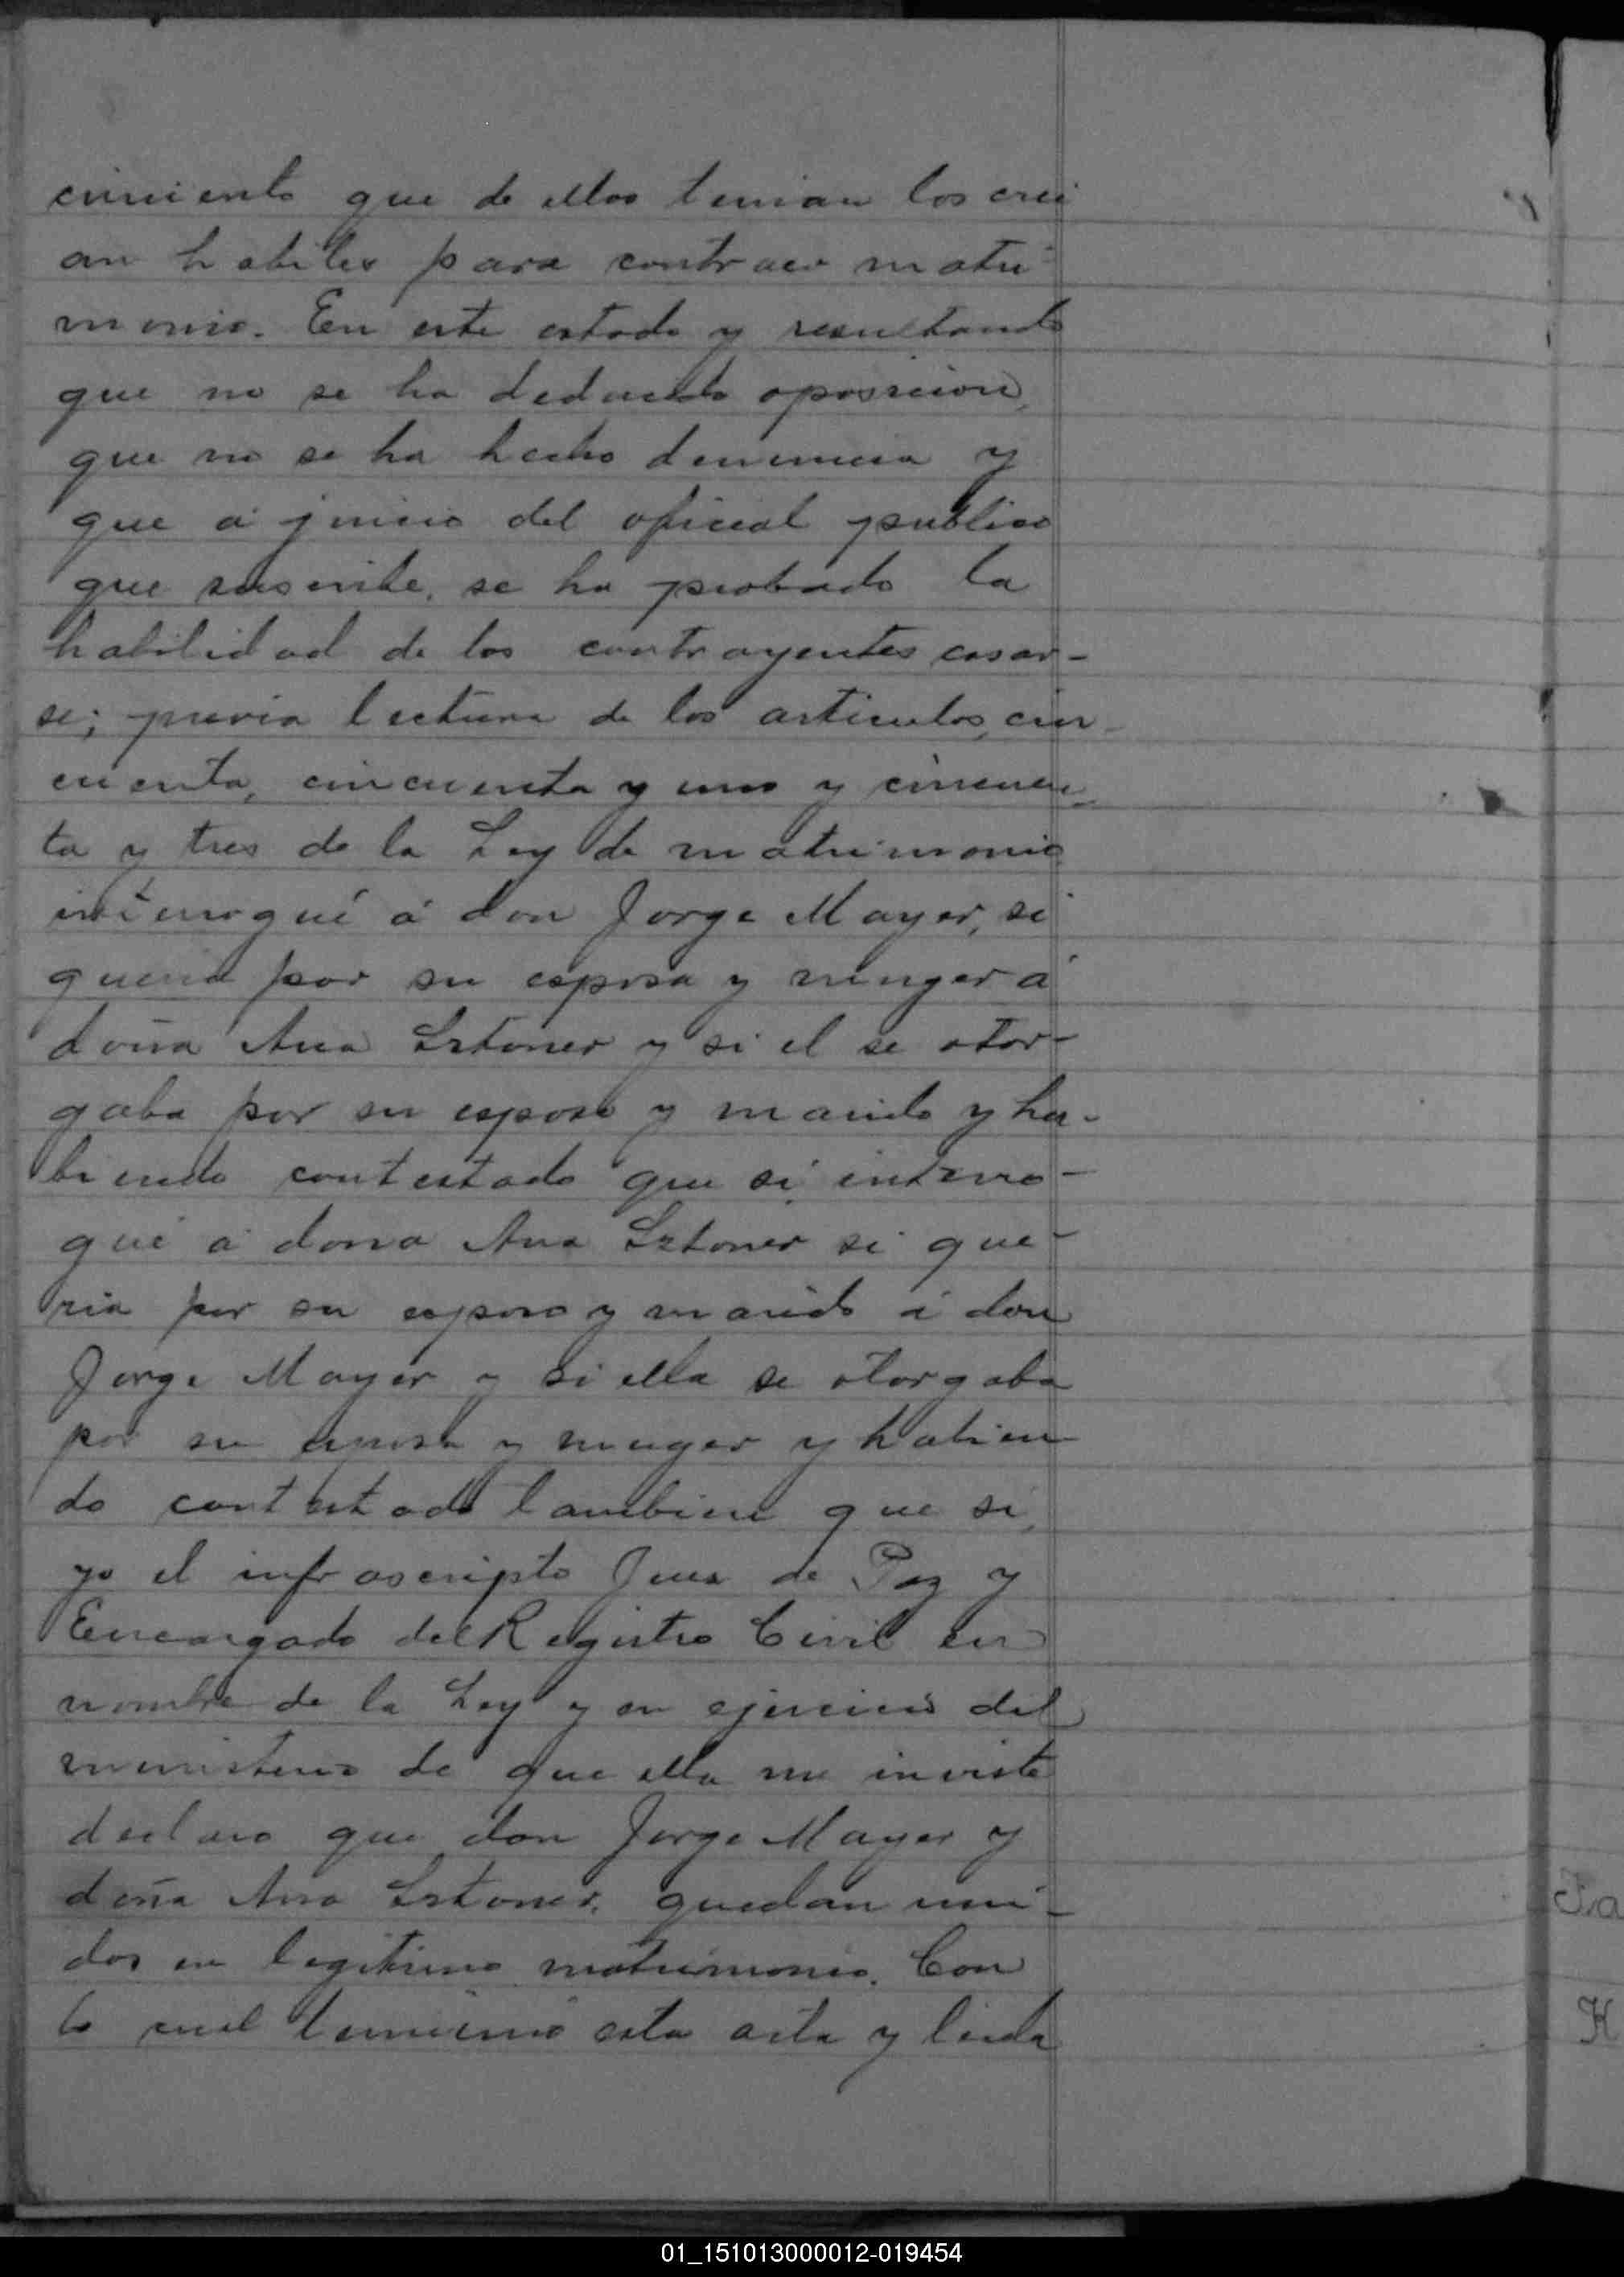 cimiento que de ellos tenian los crei
an habiles para contraer matri
monio. En este estado y resultando
que no se ha deducido oposicion,
que no se ha hecho denuncia y
que á juicio del oficial publico
que suscribe, se ha probado la
habilidad de los contrayentes casar-
se; previa lectura de los articulos, cin-
cuenta, cincuenta y uno y cincuen-
ta y tres de la Ley de matrimonio
interrogué á don Jorge Mayer, si
queria por su esposa y muger á
doña Ana Sztoner y si el se otor-
gaba por su esposo y marido y ha-
biendo contestado que si, interro-
gué á dona Ana Sztoner si que-
ria por su esposo y marido á don
Jorge Mayer y si ella se otorgaba
por su esposa y muger y habien
do contestado tambien que si,
yo el infrascripto Juez de Paz y
Encargado del Registro Civil en
nombre de la Ley y en ejercicio del
ministerio de que ella me inviste
declaro que don Jorge Mayer y
doña Ana Sztoner, quedan uni-
dos en legitimo matrimonio. Con
lo cual terminó esta acta y leida
01_151013000012-019454